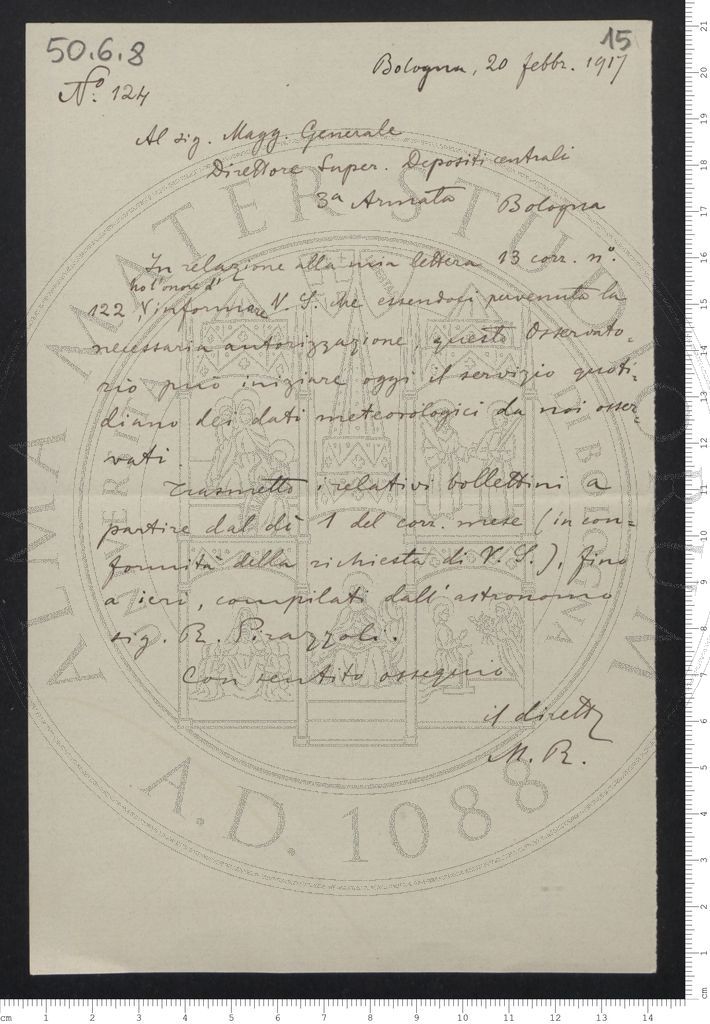 50.6.8
15
Bologna, 20 febbr. 1917
N.º 124
Al sig. Magg. Generale
Direttore Super. Depositi centrali
3ª Armata Bologna
In relazione alla mia lettera 13 corr. nº.
ho l'onore d'
122 informare V. S. che essendosi pervenuta la
necessaria autorizzazione, questo Osservato-
rio può iniziare oggi il servizio quoti-
diano dei dati meteorologici da noi osser-
vati.
Trasmetto i relativi bollettini a
partire dal dì 1 del corr. mese (in con-
formità della richiesta di V. S.), fino
a ieri, compilati dall'astronomo
sig. R. Pirazzoli.
Con sentito ossequio
il dirett
M. R.
ALMA MATER STUDIORUM
A.D. 1088